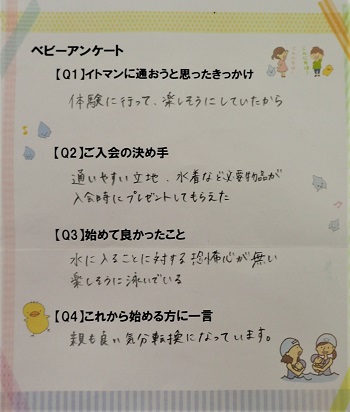 ベビーアンケート
【Q1】イトマンに通おうと思ったきっかけ
体験に行って、楽しそうにしていたから
【Q2】ご入会の決め手
通いやすい立地、水着など必要物品が
入会時にプレゼントしてもらえた
【Q3】始めて良かったこと
水に入ることに対する恐怖心が無い
楽しそうに泳いでいる
【Q4】これから始める方に一言
親も良い気分転換になっています。